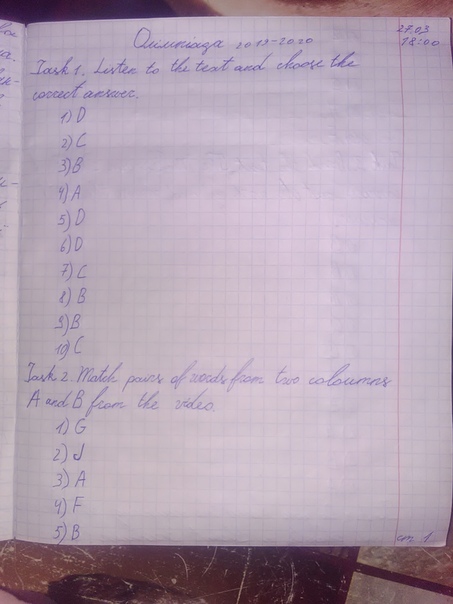 Олимпиада 2019-2020
27.03
18:00
Task 1. Listen to the text and choose the
correct answer.
1) D
2) C
3) B
4) A
5) D
6) D
7) C
8) B
9) B
10) C
Task 2. Match pairs of words from two coloumns
A and B from the video.
1) G
2) J
3) A
4) F
5) B
ст. 1